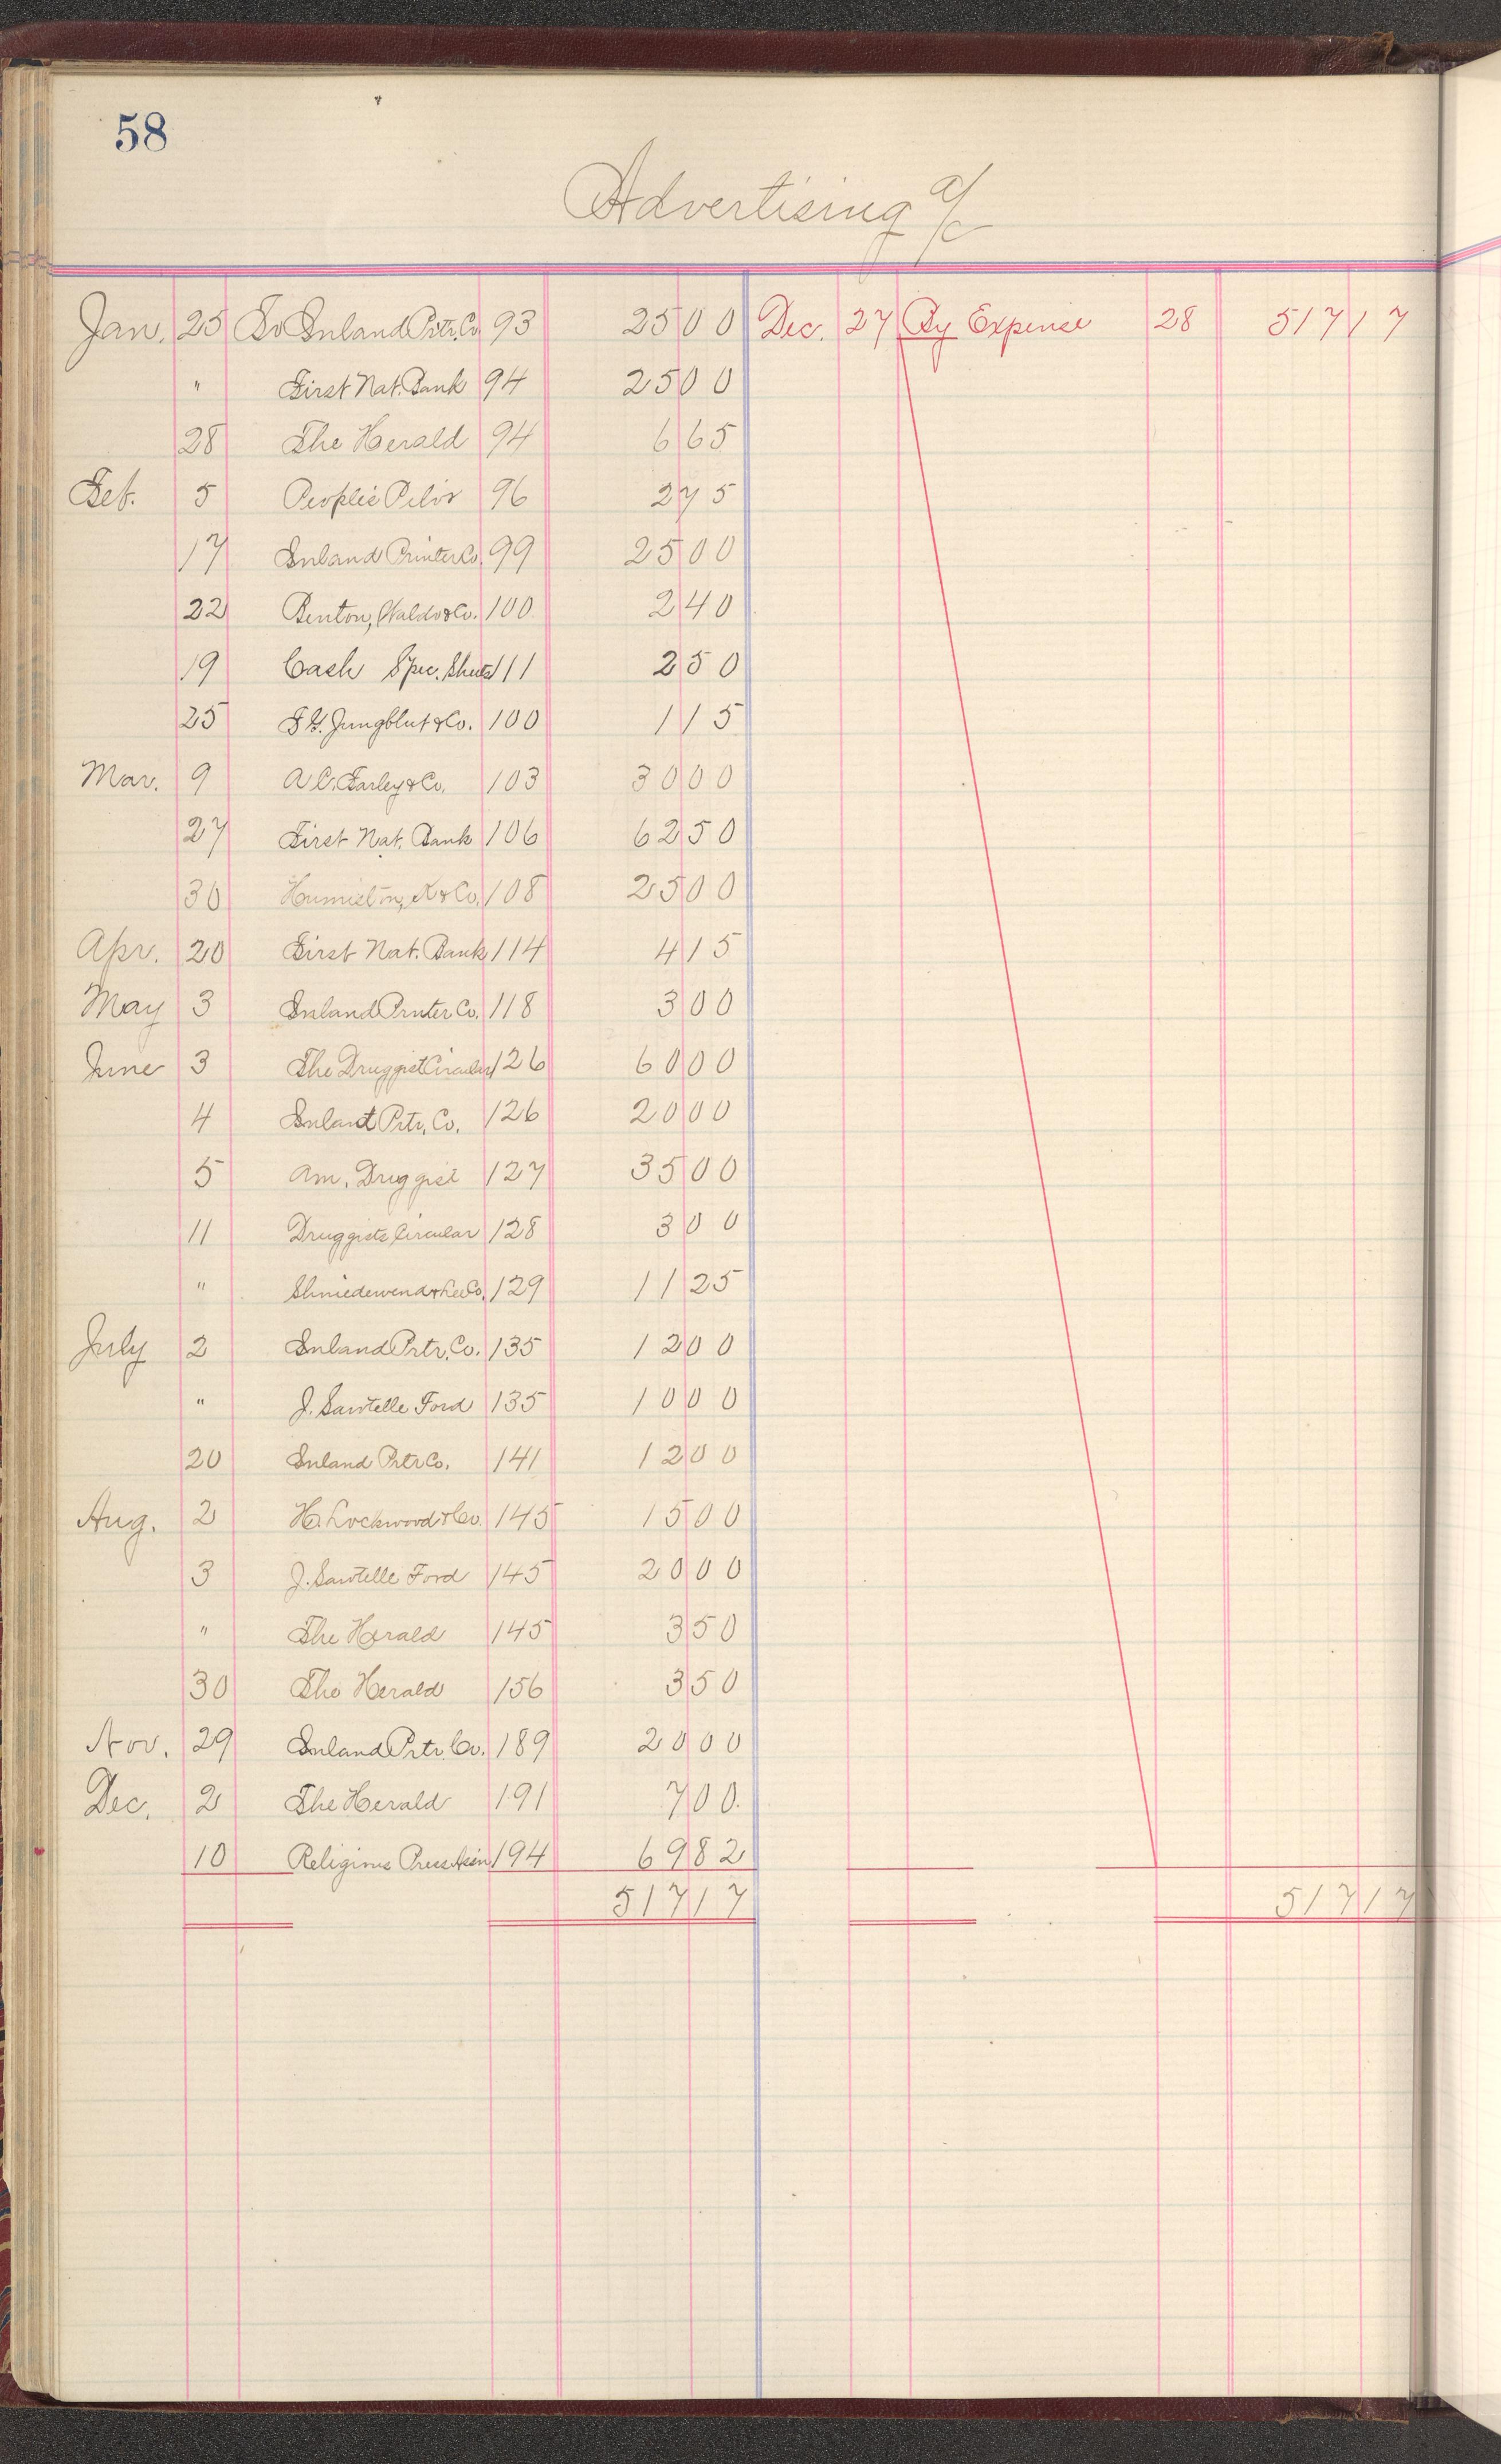 58
Advertising a/c
Jan. 25 To Inland Prtr. Co 93 25 00 Dec. 27 By Expense 28 517 17
" First Nat. Bank 94 25 00
28 The Herald 94 6 65
Feb. 5 People's 96 2 75
17 Inland Printer Co. 99 25 00
22 Benton, Waldo & Co. 100 2 40
19 Cash Spec. Sheets 111 2 50
25 Jungblut & Co. 100 1 15
Mar. 9 A.C. Farley & Co. 103 30 00
27 First Nat. Bank 106 62 50
30 Humiston, K & Co. 108 25 00
Apr. 20 First Nat. Bank 114 4 15
May 3 Inland Prnter Co. 118 3 00
June 3 The Druggist Circular 126 60 00
4 Inland Prtr. Co. 126 20 00
5 Am. Druggist 127 35 00
11 Druggists Circular 128 3 00
" Shniedewend & Lee Co. 129 11 25
July 2 Inland Prtr. Co. 135 12 00
" J. Sawtelle Ford 135 10 00
20 Inland Prtr Co. 141 12 00
Aug. 2 H. Lockwood & Co. 145 15 00
3 J. Sawtelle Ford 145 20 00
" The Herald 145 3 50
30 The Herald 156 3 50
Nov. 29 Inland Prtr. Co. 189 20 00
Dec. 2 The Herald 191 7 00
10 Religious Press Assn 194 69 82
517 17 517 17